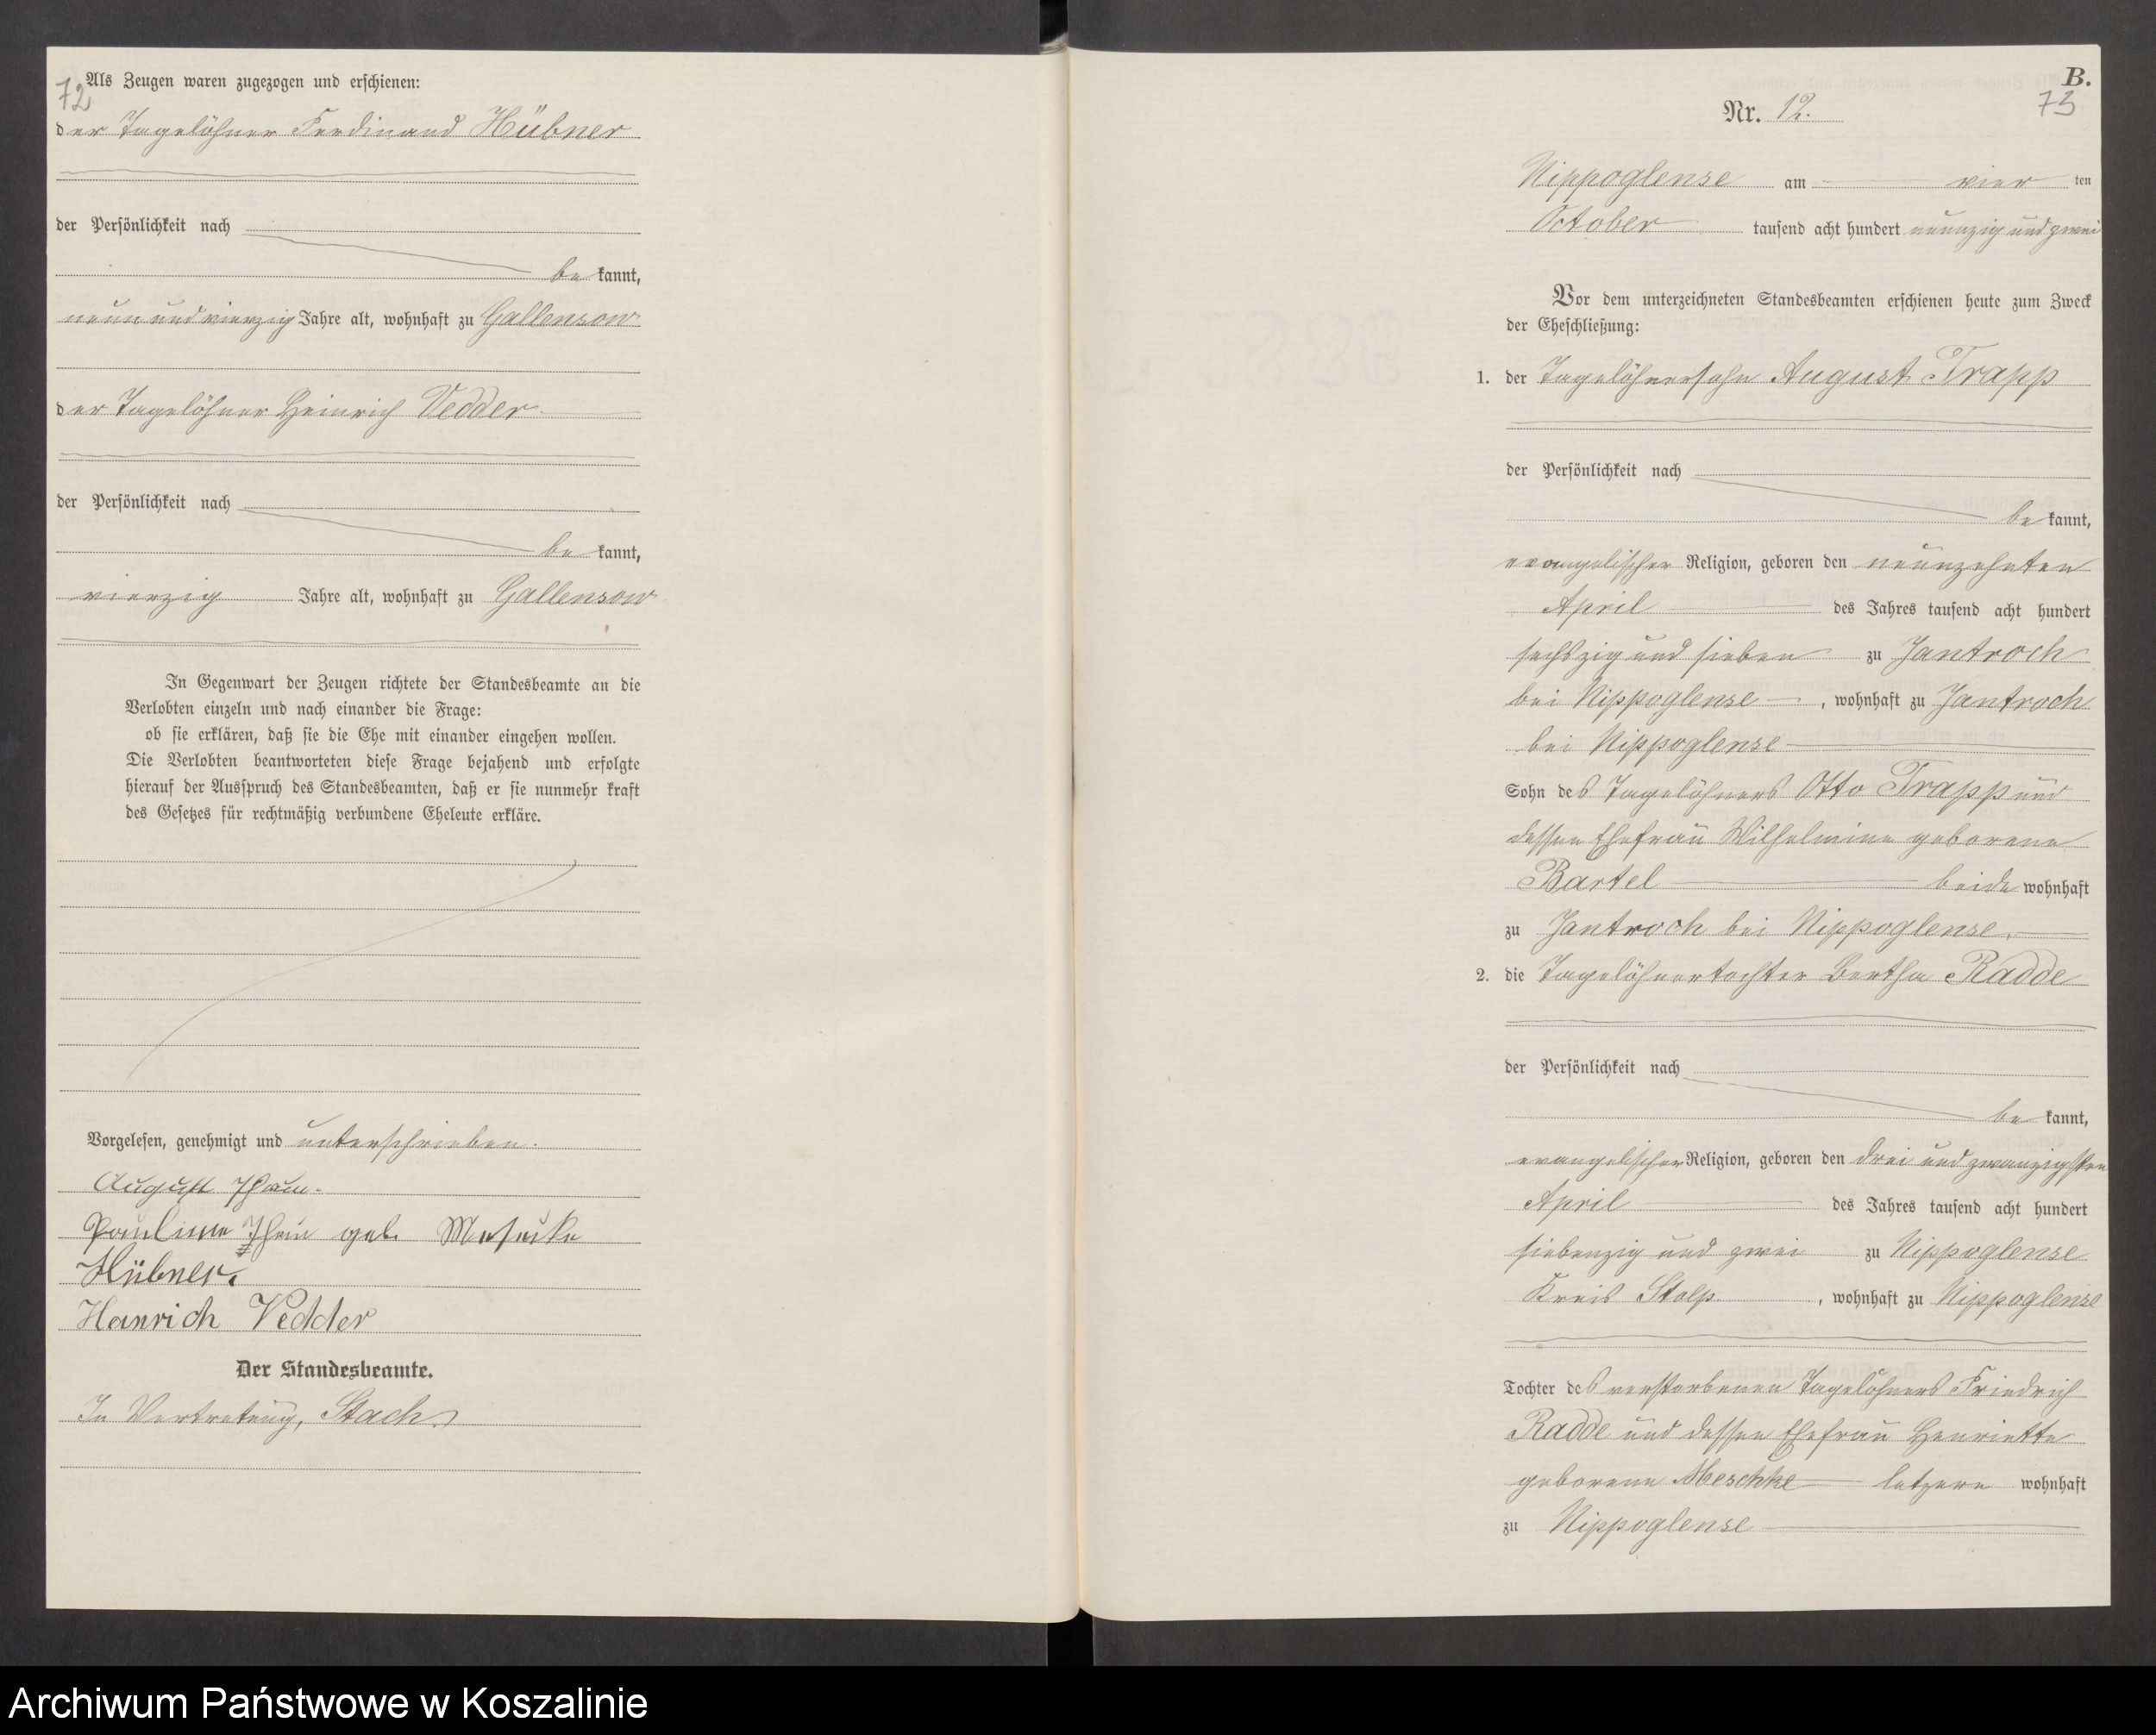 72
Als Zeugen waren zugezogen und erschienen:
der Tagelöhner Ferdinand Hübner
der Persönlichkeit nach
be kannt,
neun und vierzig Jahre alt, wohnhaft zu Gallensow
der Tagelöhner Heinrich Vedder
der Persönlichkeit nach
be kannt,
vierzig Jahre alt, wohnhaft zu Gallensow
In Gegenwart der Zeugen richtete der Standesbeamte an die
Verlobten einzeln und nach einander die Frage:
ob sie erklären, daß sie die Ehe mit einander eingehen wollen.
Die Verlobten beantworteten diese Frage bejahend und erfolgte
hierauf der Ausspruch des Standesbeamten, daß er sie nunmehr kraft
des Gesetzes für rechtmäßig verbundene Eheleute erkläre.
Vorgelesen, genehmigt und unterschrieben.
August
Pauline geb.
Hübner.
Heinrich Vedder
Der Standesbeamte.
In Vertretung, Stach
B.
73
Nr. 12.
Nippoglense am vier ten
October tausend acht hundert neunzig und zwei
Vor dem unterzeichneten Standesbeamten erschienen heute zum Zweck
der Eheschließung:
1. der Tagelöhnersohn August Trapp
der Persönlichkeit nach
be kannt,
evangelischer Religion, geboren den neunzehnten
April des Jahres tausend acht hundert
sechszig und sieben zu Jantroch
bei Nippoglense, wohnhaft zu Jantroch
bei Nippoglense
Sohn des Tagelöhners Otto Trapp und
dessen Ehefrau Wilhelmine geborene
Bartel beide wohnhaft
zu Jantroch bei Nippoglense.
2. die Tagelöhnertochter Bertha Radde
der Persönlichkeit nach
be kannt,
evangelischer Religion, geboren den drei und zwanzigsten
April des Jahres tausend acht hundert
siebenzig und zwei zu Nippoglense
Kreis Stolp, wohnhaft zu Nippoglense
Tochter des verstorbenen Tagelöhners Friedrich
Radde und dessen Ehefrau Henriette
geborene Meschke letzere wohnhaft
zu Nippoglense
Archiwum Państwowe w Koszalinie